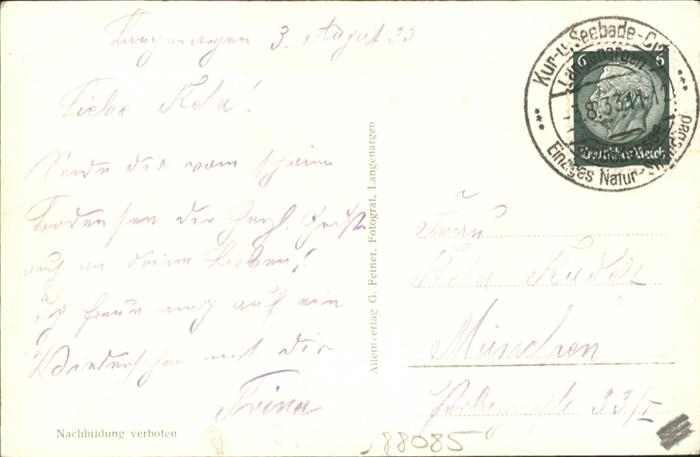 Langenargen 3. August 33
Liebe !
Sende dir vom schönen
Bodensee die herzl. Grüße
auch an deine Lieben!
Ich freue mich auf ein
Wiedersehen mit dir
Alleinverlag G. Feiner, Fotograf, Langenargen
Kur-u. Seebade-O
Langenargen
3.8.33.11-1
6 6
Deutsches Reich
Einziges Natur-Strandbad
Frau
München
33/I
Nachbildung verboten
88085